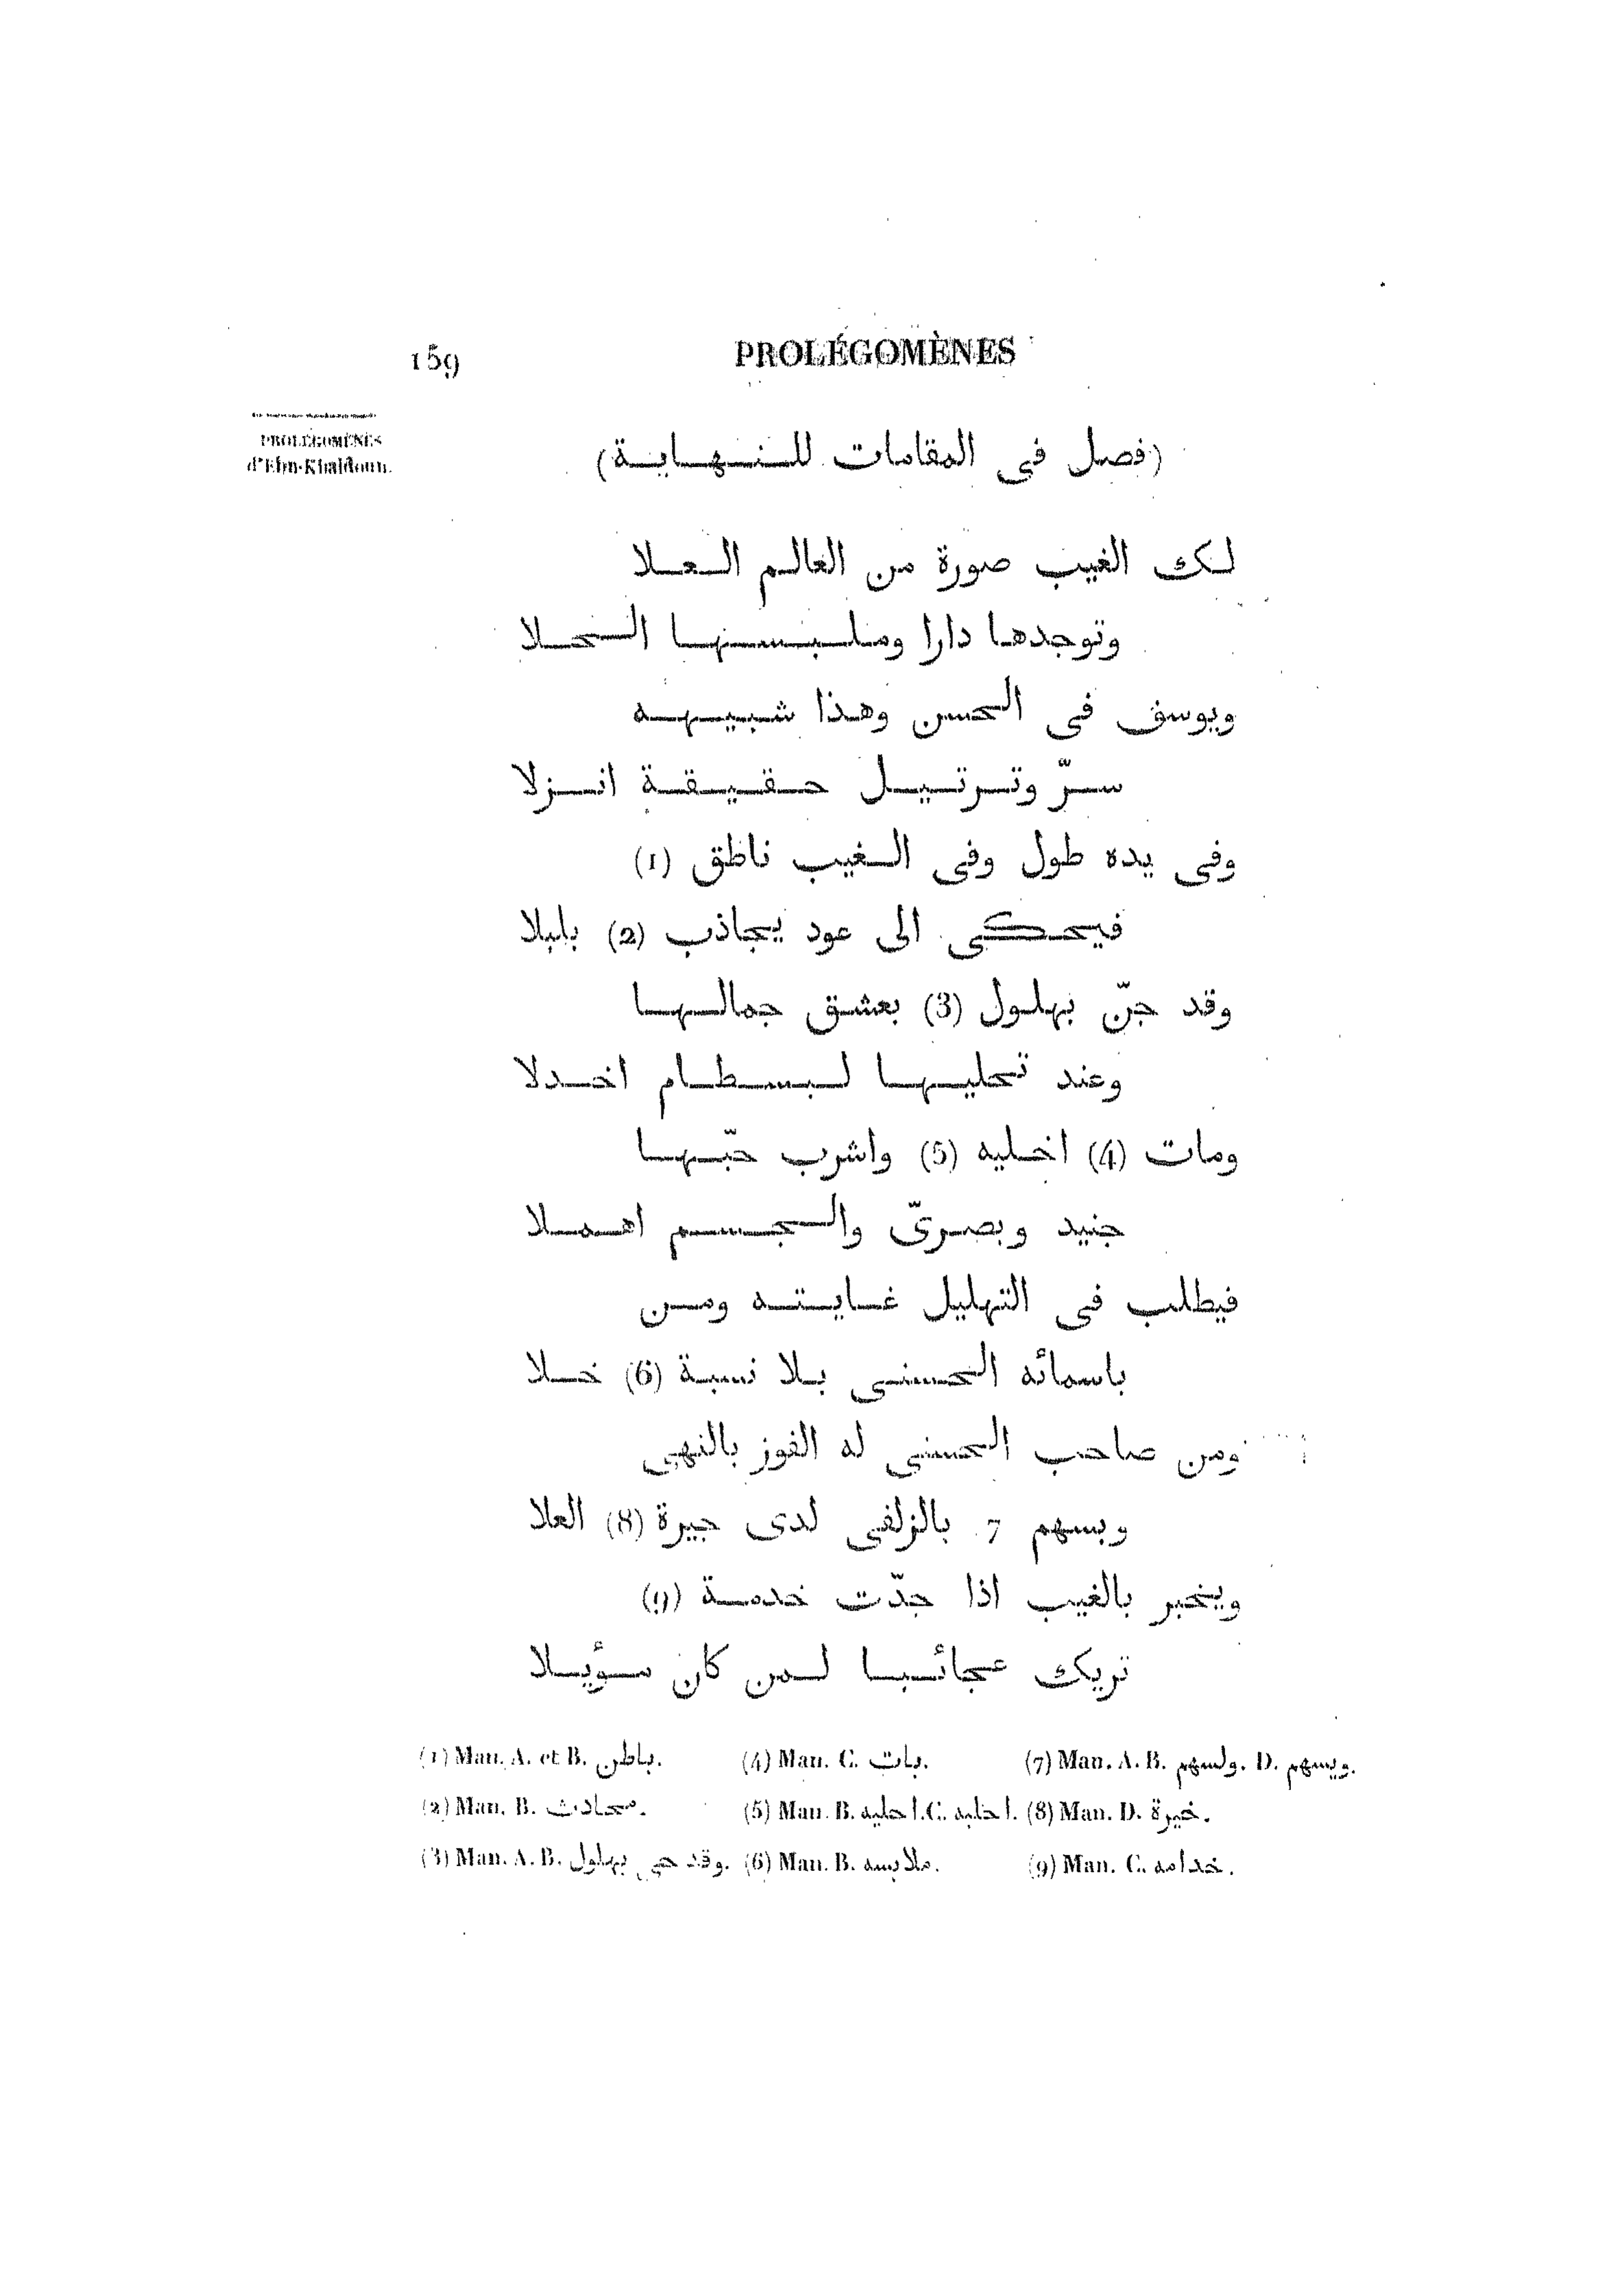 159
PROLÉGOMÈNES
PROLÉGOMÈNES
d'Ebn-Khaldoun.
(فصل فى المقامات للنهاية)
لك الغيب صورة من العالم العلا
وتوجدها دارا وملبسنها الحلا
ويوسف فى الحسن وهذا شبيهه
سرّ وترتيل حقيقة انزلا
وفى يده طول وفى الغيب ناطق (1)
فيحكى الى عود يجاذب (2) بلبلا
وقد جنّ بهلول (3) بعشق جمالها
وعند تحليها لبسطام اخدلا
ومات (4) اخليه (5) واشرب حبّها
جنيد وبصرىّ والجسم اهملا
فيطلب فى التهليل غايته ومن
باسمائه الحسنى بلا نسبة (6) خلا
ومن صاحب الحسنى له الفوز بالنهى
وبسهم 7 بالزلفى لدى جيرة (8) العلا
ويخبر بالغيب اذا جدّت خدمة (9)
تريك عجائبا لمن كان سؤيلا
(1) Man. A. et B. باطن.
(2) Man. B. محادث.
(3) Man. A. B. وقد حى بهلول.
(4) Man. C. بات.
(5) Man. B. احليه. C. احلبه.
(6) Man. B. ملابسه.
(7) Man. A. B. ولسهم. D. ويسهم.
(8) Man. D. خيرة.
(9) Man. C. خدامه.